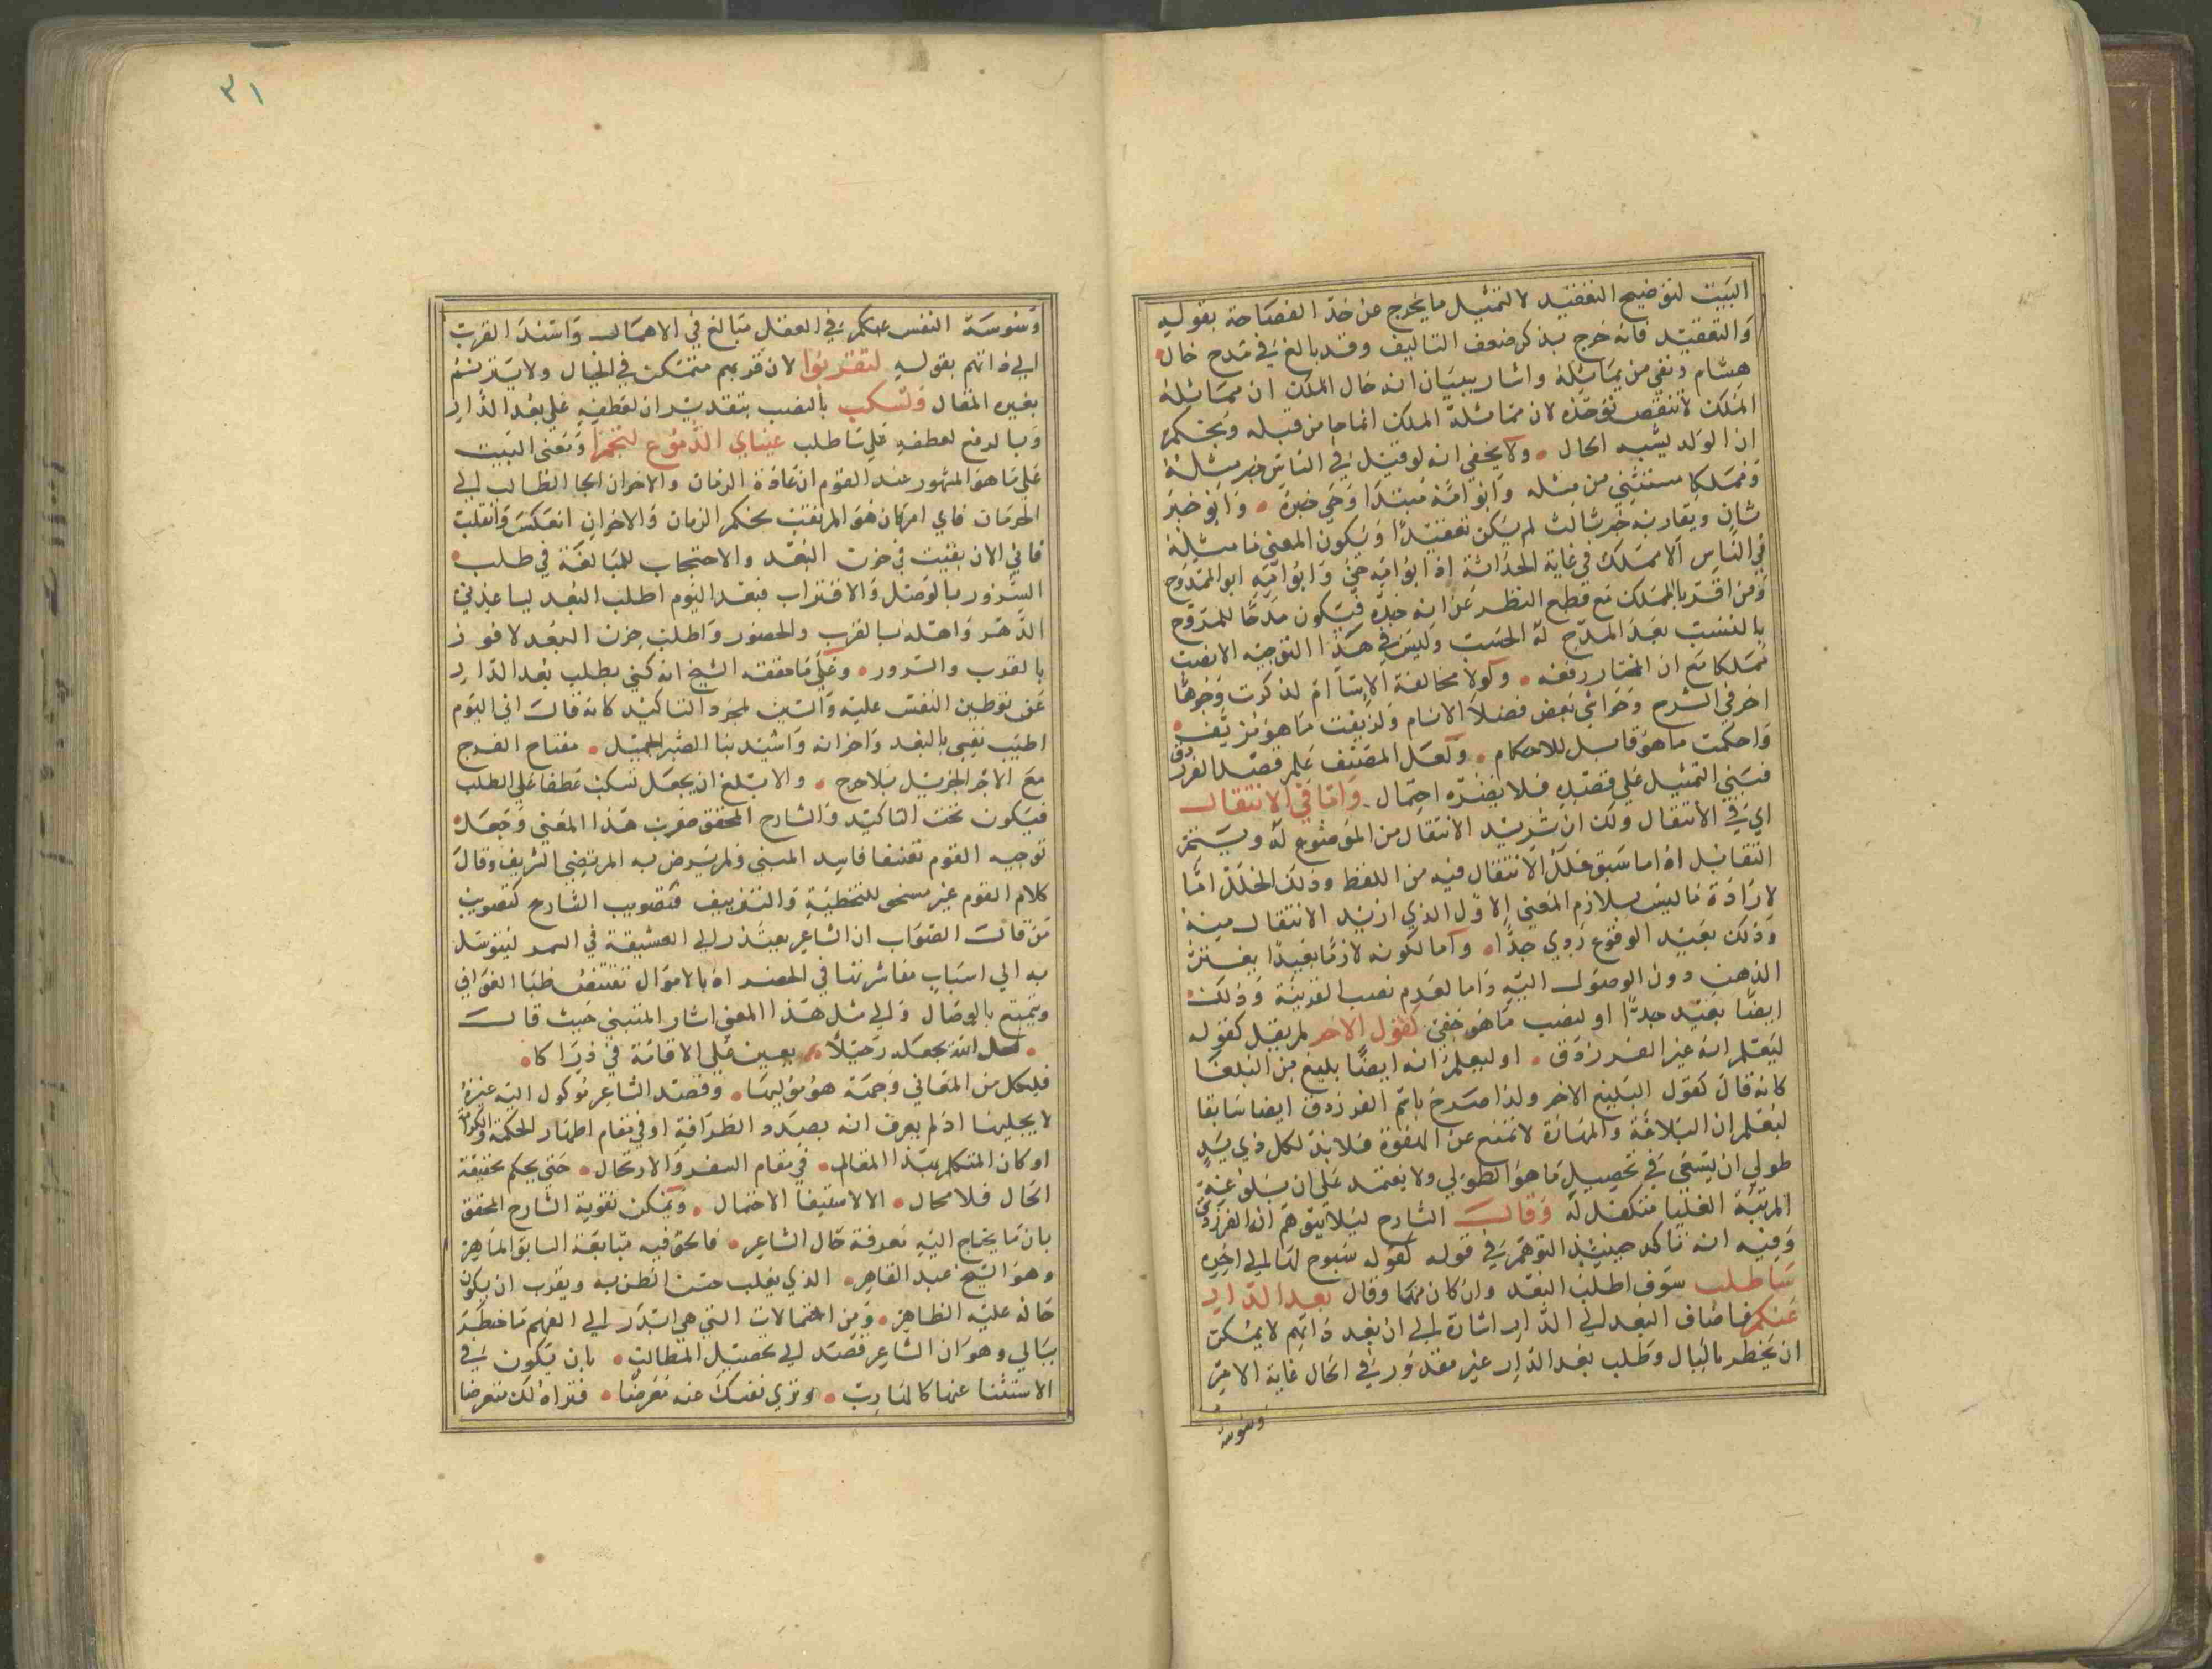 البيت لتوضيح التعقيد لا لتمثيل ما يخرج عن حد الفصاحة بقوله
والتعقيد فانه خرج بذكر ضعف التاليف وقد بالغ في مدح خال
هشام ونفي من يماثله واشار ببيان انه خال الملك ان مماثلة
الملك لا تنقص توحده لان مماثلة الملك انما جا من قبله وبحكم
ان الولد يشبه الحال ولا يخفى انه لو قيل في الناس خبر مثله
ومملكا مستثنى من مثله وابو امه مبتدا وحي خبره وابوه خبر
ثان ويقاربه خبر ثالث لم يكن تعقيدا ويكون المعنى ما مثله
في الناس الا مملك في غاية الحداثة اذ ابو امه حي وابو امه ابو الممدوح
ومن اقر بالملك مع قطع النظر عن انه جده فيكون مدحا للمدوح
بالنسب بعد المدح له الحسب وليس في هذا التوجيه الا نصب
مملكا مع ان المختار رفعه ولولا مخالفة الاسام لذكرت وجوها
اخر في الشرح وحواشي بعض فضلا الانام ولزيفت ما هو مزيف
واحكمت ما هو قابل للاحكام ولعل المصنف علم قصد الفرزدق
فبنى التمثيل على قصده فلا يضره احتمال واما في الانتقال
اي في الانتقال ولك ان تريد الانتقال من الموضوع له ويستمر
التقابل اذ ما سبق خلل الانتقال فيه من اللفظ وذلك الخلل اما
لارادة ما ليس بلازم المعنى الاول الذي اريد الانتقال منه
وذلك بعيد الوقوع ردي جدا واما لكونه لازما بعيدا يفتر
الذهن دون الوصول اليه واما لعدم نصب القرينة وذلك
ايضا بعيد جدا او لنصب ما هو خفي كقول الاخر لم يقل كقوله
ليعلم انه غير الفرزدق او ليعلم انه ايضا بليغ من البلغا
كانه قال كقول البليغ الاخر ولذا صرح باسم الفرزدق ايضا سابقا
ليعلم ان البلاغة والمهارة لا تمنع عن الهفوة فلا بد لكل ذي يد
طولى ان يسعى في تحصيل ما هو الطولى ولا يعتمد على ان بلوغه
المرتبة العليا متكفل له وقال الشارح ليلا يتوهم انه الفرزدق
وفيه انه تاكد حينئذ التوهم في قوله كقوله سبوح لها الى اخره
ساطلب سوف اطلب البعد وان كان مهما وقال بعد الدار
عنكم فاضاف البعد الى الدار اشارة الى ان بعد ذاتهم لا يمكن
ان يخطر بالبال وطلب بعد الدار غير مقدور في الحال غاية الامر
وسوسة
٣١
وسوسة النفس عنكم في العقل مبالغ في الاهمال واسند القرب
الى ذاتهم بقوله لتقربوا لان قربهم متمكن في الخيال ولا يترنم
بغيره المقال وتسكب بالنصب بتقدير ان لعطفه على بعد الدار
وبالرفع لعطفه على ساطلب عيناي الدموع لتجمدا ومعنى البيت
على ما هو المشهور عند القوم ان عادة الزمان والاخوان الجا الطالب الى
الحرمان فاي امر كان هو المرتقب بحكم الزمان والاخوان انعكس وانقلب
فاني الان بقيت في حزن البعد والاحتجاب للمبالغة في طلب
السرور بالوصل والاقتراب فبعد اليوم اطلب البعد ليساعدني
الدهر واهله بالقرب والحضور واطلب حزن البعد لافوز
بالقرب والسرور وعلى ما حققه الشيخ انه كنى بطلب بعد الدار
عن توطين النفس عليه والسين لمجرد التاكيد كانه قال اني اليوم
اطيب نفسي بالبعد واحزانه واشيد بنا الصبر الجميل مفتاح الفرج
مع الاجر الجزيل بلا حرج والابلغ ان يجعل تسكب عطفا على اطلب
فيكون تحت التاكيد والشارح المحقق صوب هذا المعنى وجعل
توجيه القوم تعسفا فاسد المبنى ولم يرض به المرتضى الشريف وقال
كلام القوم غير مستحق للتخطية والتزييف فتصويب الشارح كتصويب
من قال الصواب ان الشاعر يعتذر الى العشيقة في السر ليتوسل
به الى اسباب معاشرتنا في الحضر اذ بالاموال تقتنص ظبا الغوافي
ويتمتع بالوصال والى مثل هذا المعنى اشار المتنبي حيث قال
لعل الله يجعله رحيلا يعين على الاقامة في ذراكا
فلكل من المعاني وجهة هو موليها وقصد الشاعر موكول اليه غيره
لا يجليها اذ لم يعرف انه بصدد الظرافة او في مقام اظهار الحكمة والكرامة
او كان المتكلم بهذا المقال في مقام السفر والارتحال حتى يحكم بحقيقة
الحال فلا محال الا لاستيفا الاحتمال ويمكن تقوية الشارح المحقق
بان ما يحتاج اليه معرفة حال الشاعر فالحق فيه متابعة السابق الماهر
وهو الشيخ عبد القاهر الذي يغلب حسن الظن به ويقرب ان يكون
حاله عليه الظاهر ومن احتمالات التي هي ابتدر الى الفهم ما خطر
ببالي وهو ان الشاعر قصد الى تحصيل المطالب بان يكون في
الاستغنا عنها كالهارب وتري نفسك عنه معرضا فتراه لك متعرضا